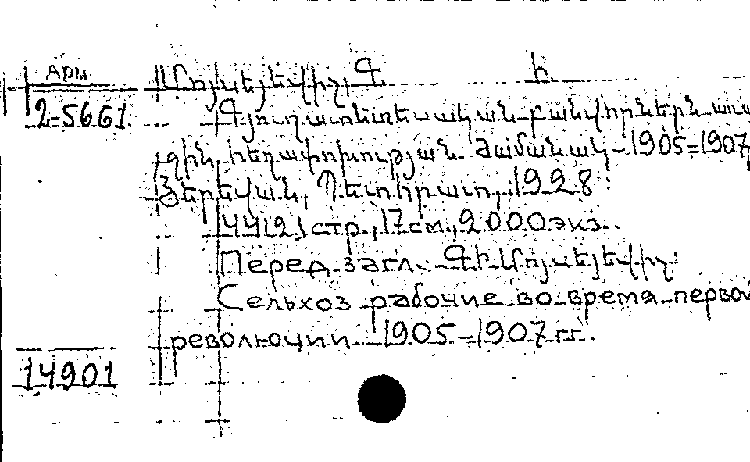 Арм Մոյսեյեվիչ, Գ. Ի.
2-5661 Գյուղատնտեսական բանվորներն առա
ջին հեղափոխության ժամանակ - 1905-1907
Յերեվան, Պետհրատ, 1928.
44[2] стр., 17 см., 2000 экз.
Перед загл. Գ. Ի. Մոյսեյեվիչ.
Сельхоз рабочие во время первой
революции 1905-1907 гг.
14901